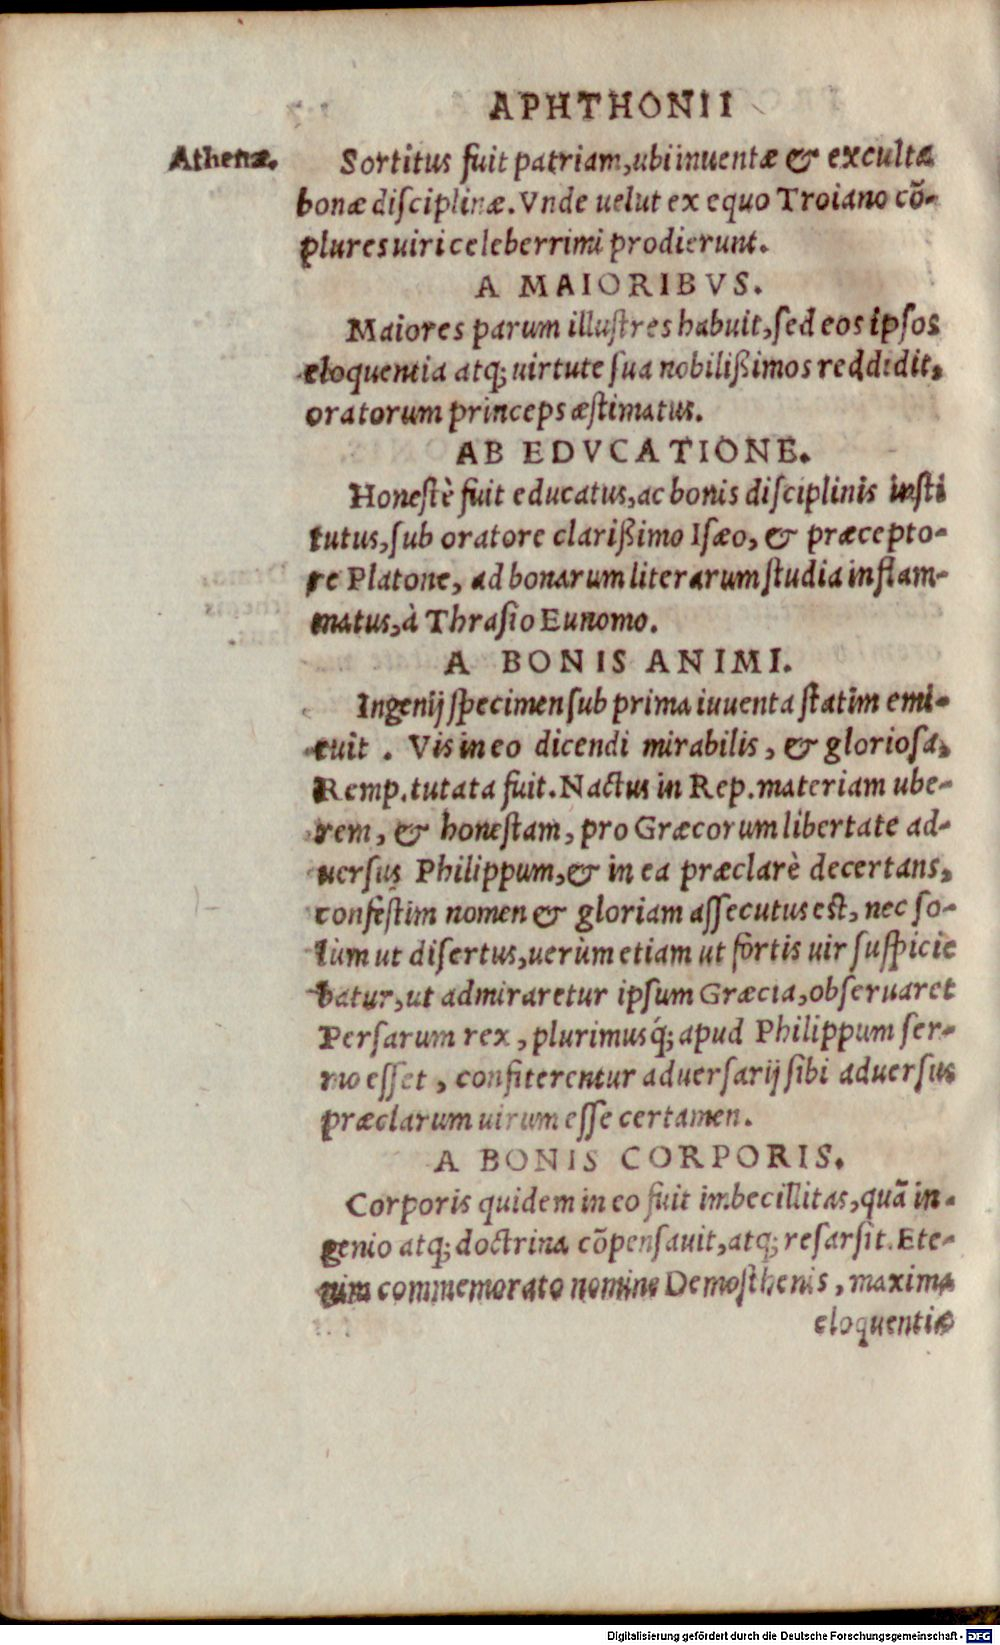 APHTHONII
Athenæ.
Sortitus fuit patriam, ubi inuentæ & excultæ
bonæ disciplinæ. Vnde uelut ex equo Troiano cõ-
plures uiri celeberrimi prodierunt.
A MAIORIBVS.
Maiores parum illustres habuit, sed eos ipsos
eloquentia atq; uirtute sua nobilißimos reddidit,
oratorum princeps æstimatus.
AB EDVCATIONE.
Honestè fuit educatus, ac bonis disciplinis insti
tutus, sub oratore clarißimo Isæo, & præcepto-
re Platone, ad bonarum literarum studia inflam-
matus, à Thrasio Eunomo.
A BONIS ANIMI.
Ingenij specimen sub prima iuuenta statim emi-
cuit. Vis in eo dicendi mirabilis, & gloriosa,
Remp. tutata fuit. Nactus in Rep. materiam ube-
rem, & honestam, pro Græcorum libertate ad-
uersus Philippum, & in ea præclarè decertans,
confestim nomen & gloriam assecutus est, nec so-
lùm ut disertus, uerùm etiam ut fortis uir suspicie
batur, ut admiraretur ipsum Græcia, obseruaret
Persarum rex, plurimusq́; apud Philippum ser-
mo esset, confiterentur aduersarij sibi aduersus
præclarum uirum esse certamen.
A BONIS CORPORIS.
Corporis quidem in eo fuit imbecillitas, quã in-
genio atq; doctrina cõpensauit, atq; resarsit. Ete-
nim commemorato nomine Demosthenis, maxima
eloquentiæ
Digitalisierung gefördert durch die Deutsche Forschungsgemeinschaft - DFG